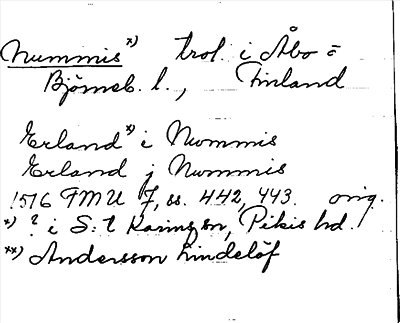 Nummis *) trol. i Åbo o
Björneb. l., Finland
Erland *) i Nummis
Erland j Nummis
1516 FMU 7, ss. 442, 443. orig.
*) ? i S:t Karins sn, Pikis hd.
**) Andersson Lindelöf